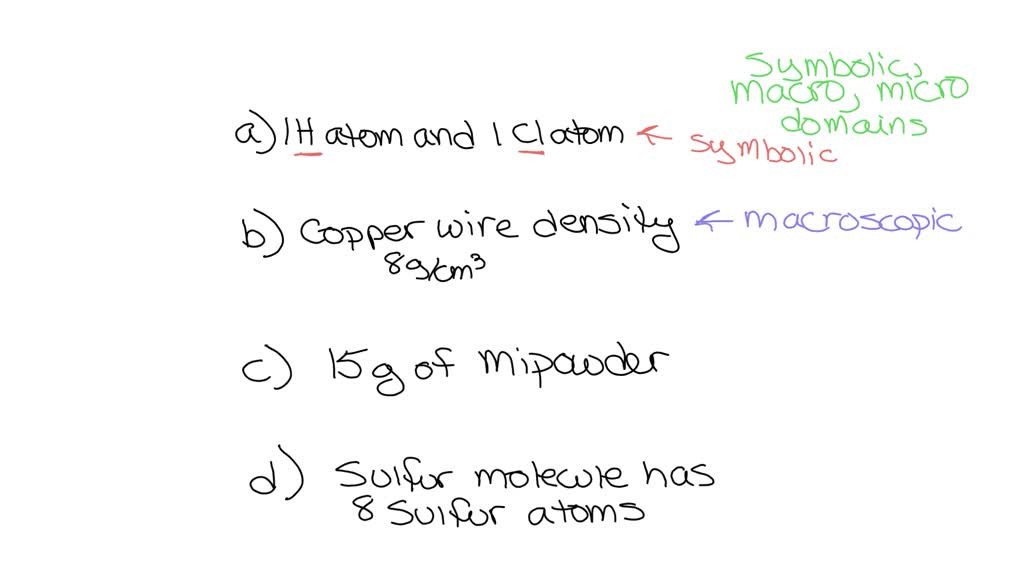 Symbolic,
macro, micro
domains
a) 1 H atom and 1 Cl atom ← symbolic
b) Copper wire density ← macroscopic
8g/cm³
c) 15g of Mipowder
d) Sulfur molecule has
8 Sulfur atoms